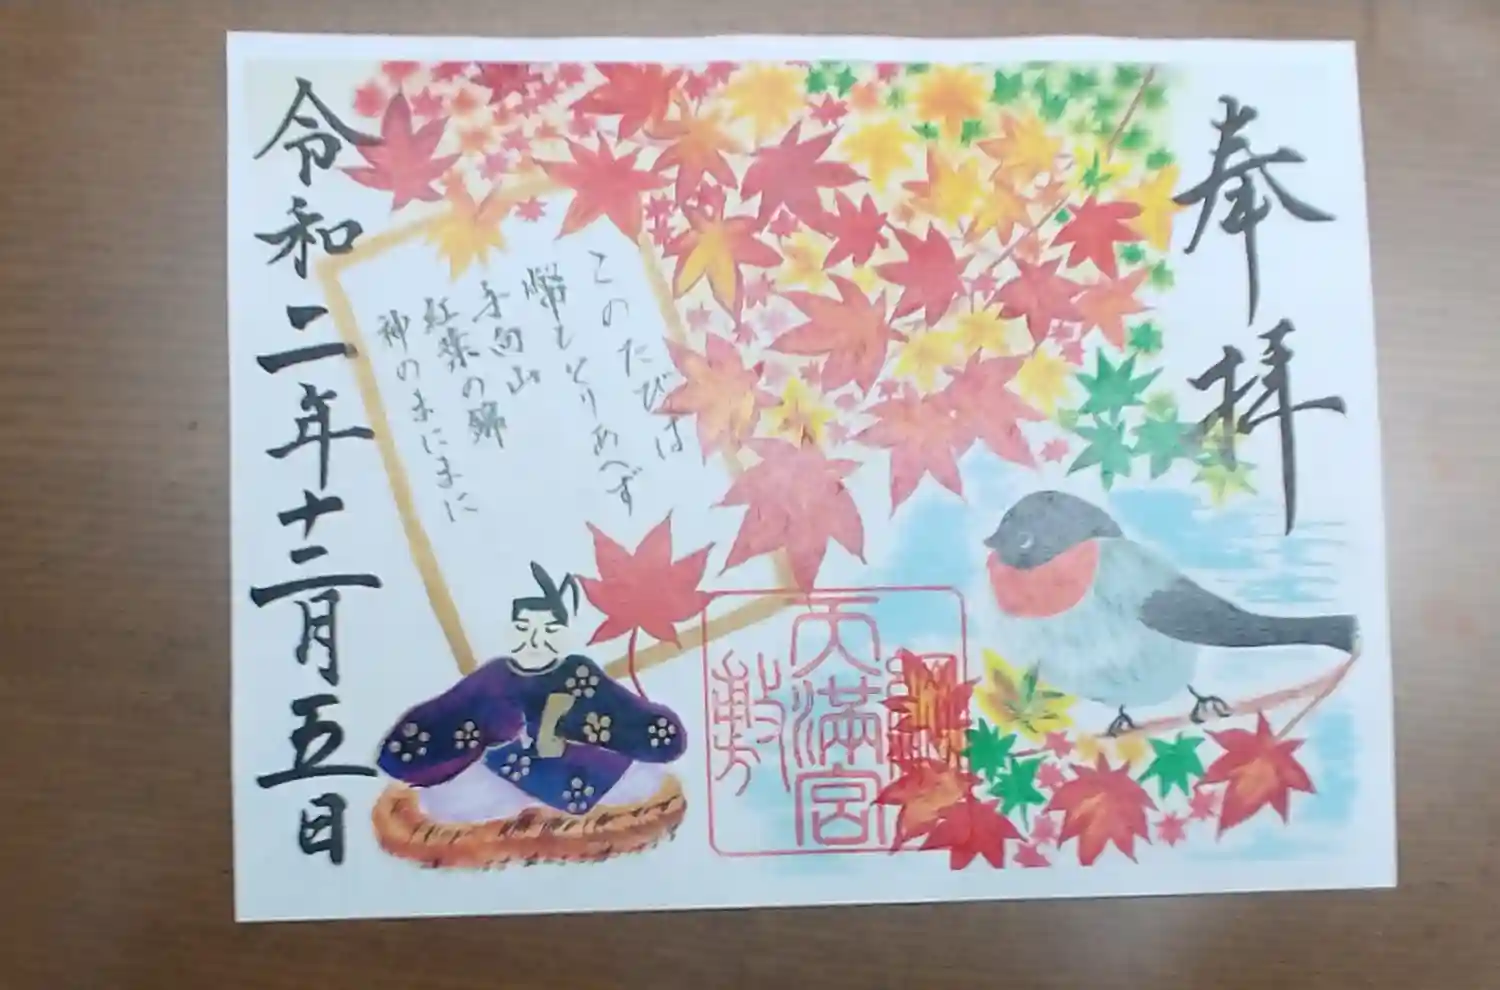 奉拝
このたびは
幣もとりあへず
手向山
紅葉の錦
神のまにまに
天滿宮
敷
令和二年十二月五日